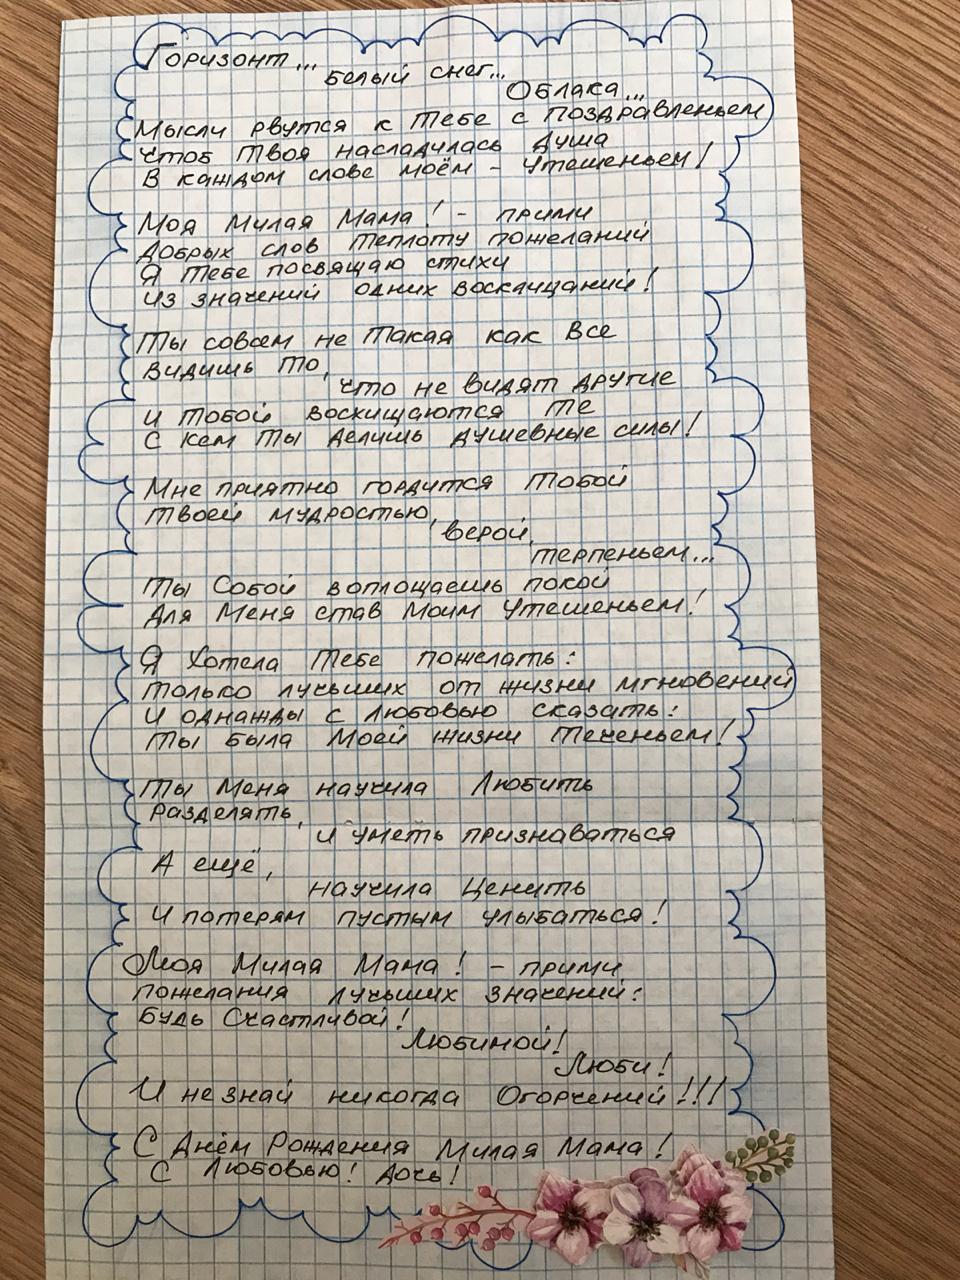 Горизонт...
Белый снег...
Облака...
Мысли рвутся к Тебе с поздравленьем
Чтоб Твоя насладилась Душа
В каждом слове моём - Утешеньем!
Моя Милая Мама! - прими
Добрых слов теплоту пожеланий
Я Тебе посвящаю стихи
Из значений одних восклицаний!
Ты совсем не Такая как Все
Видишь То,
что не видят другие
И Тобой восхищаются Те
С кем Ты делишь душевные силы!
Мне приятно гордится Тобой
Твоей мудростью,
верой,
терпеньем...
Ты Собой воплощаешь покой
Для Меня став Моим Утешеньем!
Я Хотела Тебе пожелать:
Только лучьших от жизни мгновений
И однажды с любовью сказать:
Ты была Моей жизни Теченьем!
Ты Меня научила Любить
Разделять,
и уметь признаваться
А ещё,
научила Ценить
И потерям пустым улыбаться!
Моя Милая Мама! - прими
пожелания лучьших значений:
Будь Счастливой!
Любимой!
Люби!
И не знай никогда Огорчений!!!
С Днём Рождения Милая Мама!
С Любовью! Дочь!